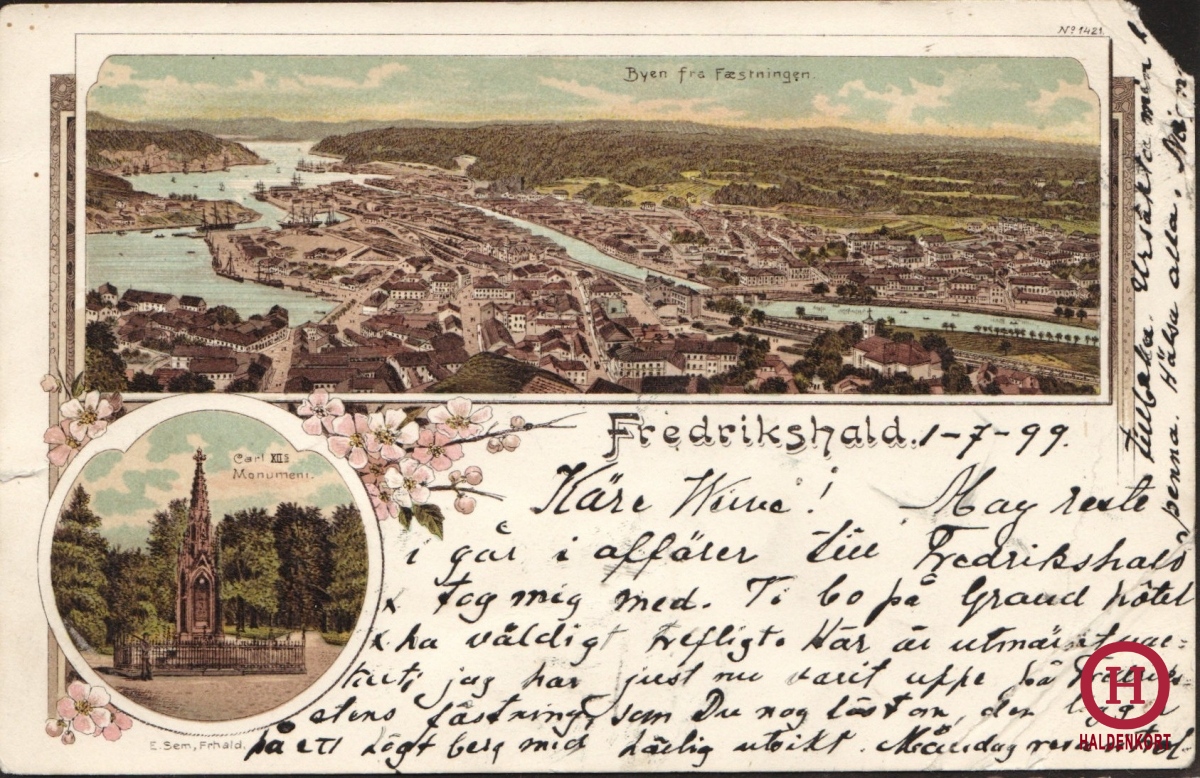 No 1421.
Byen fra Fæstningen.
Carl XIIs
Monument.
E. Sem, Frhald.
Fredrikshald. 1-7-99.
Käre! May reste
i går i affärer till Fredrikshald
x tog mig med. Vi bo på Grand hôtel
x ha väldigt trefligt. Här är utmärkt vac-
kert; jag har just nu varit uppe på Fredrik-
stens fästning, som Du nog läst om, den ligger
på ett högt berg med härlig utsikt. Måndag resa vi
tillbaka. Ursäkta min
penna. Hälsa alla.
H
HALDENKORT